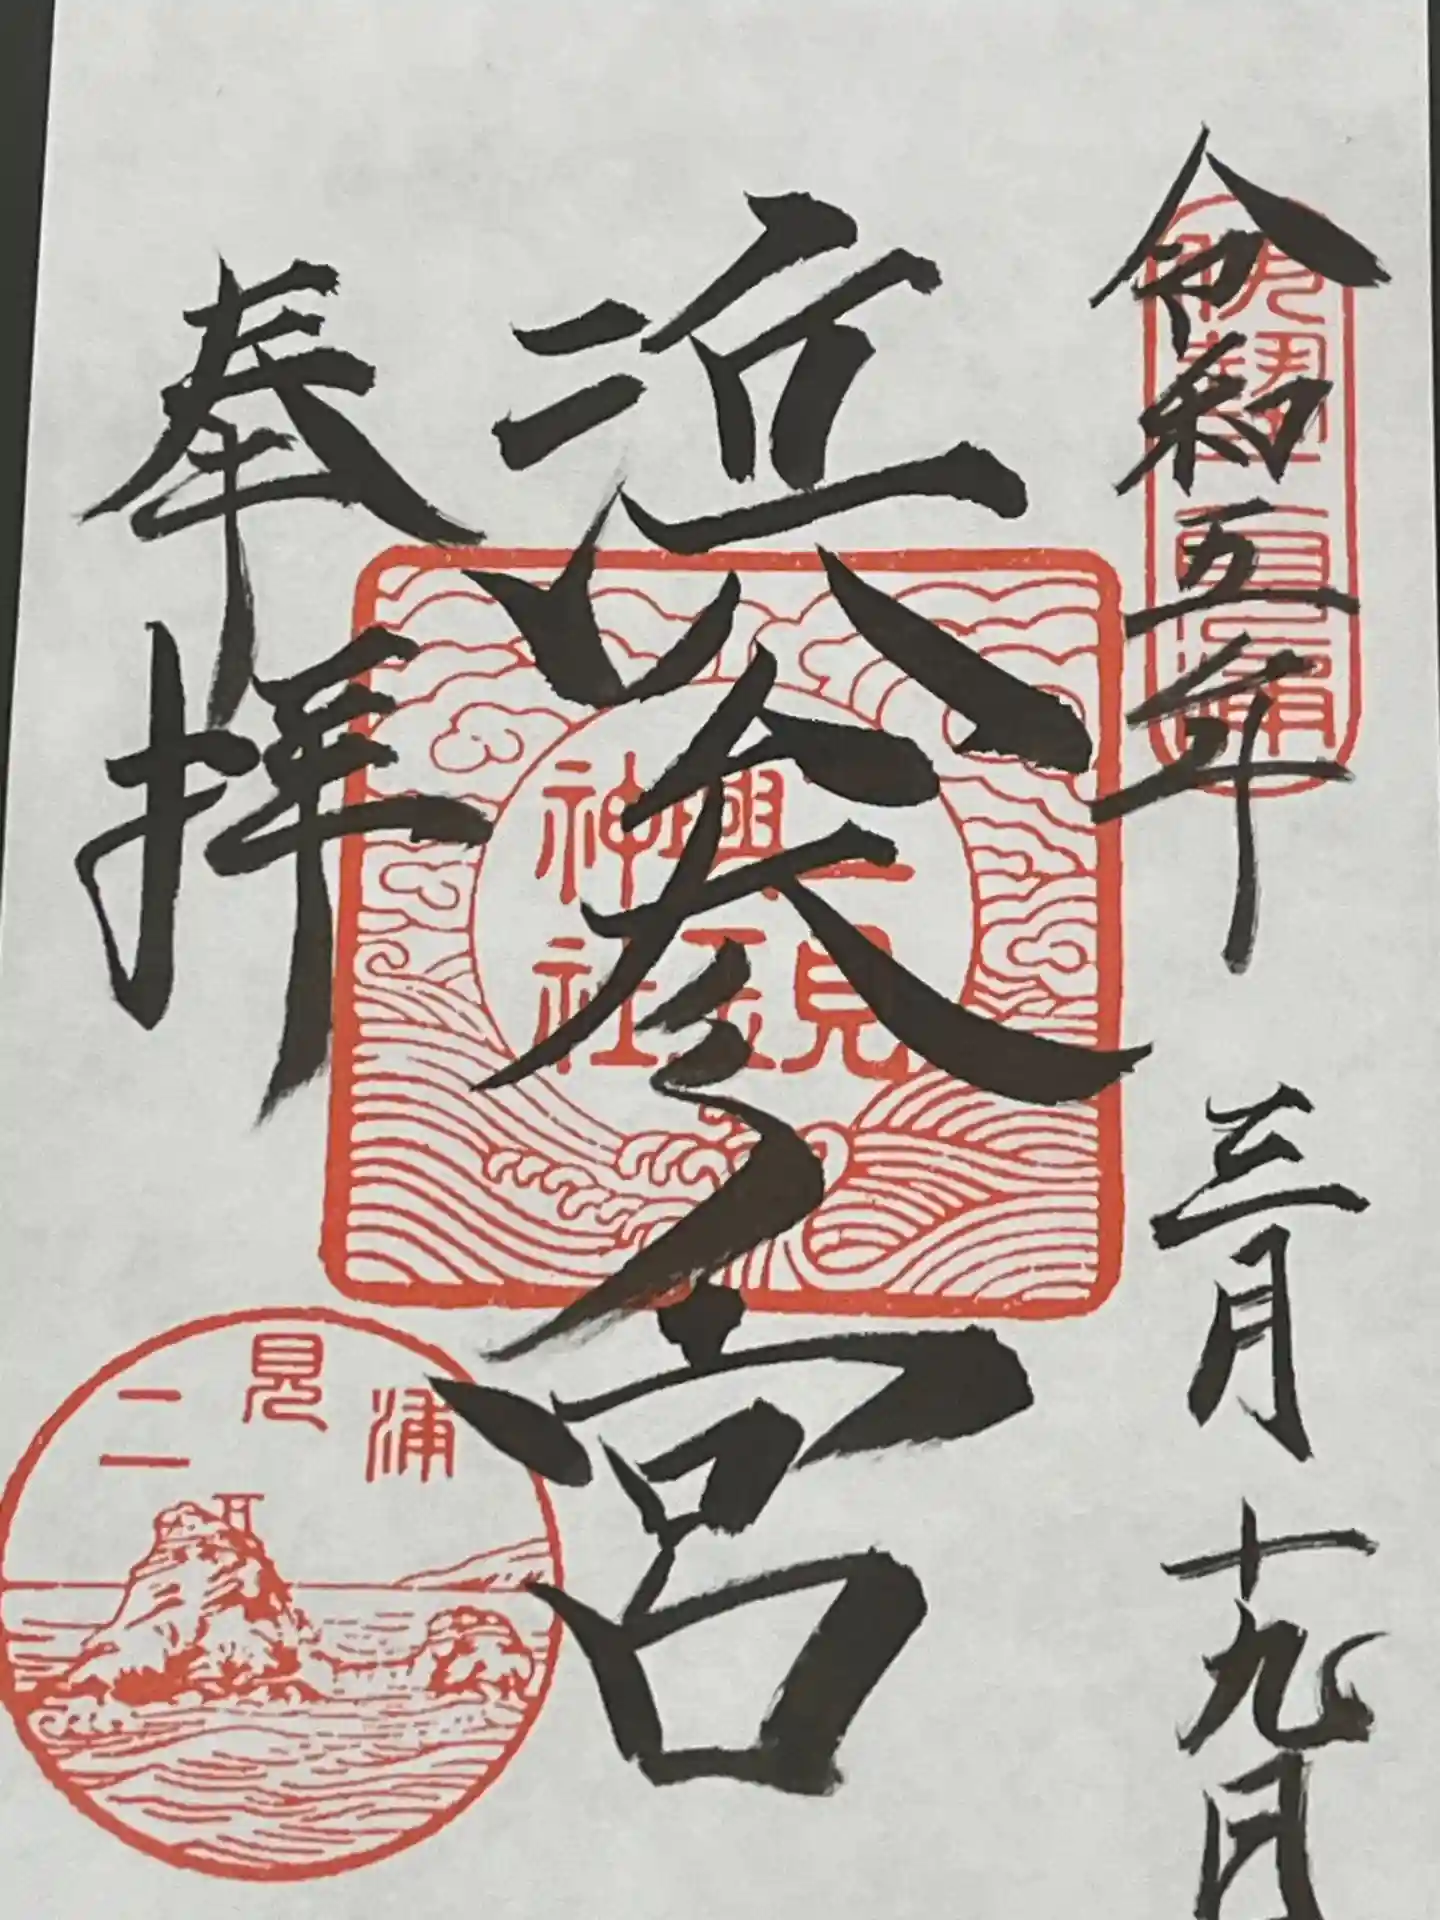 令和五年 三月 十九日
伊勢二見浦
浜参宮
二見
興玉
神社
奉拝
二見浦